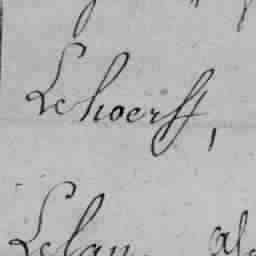 Lehoerff,
Lelan